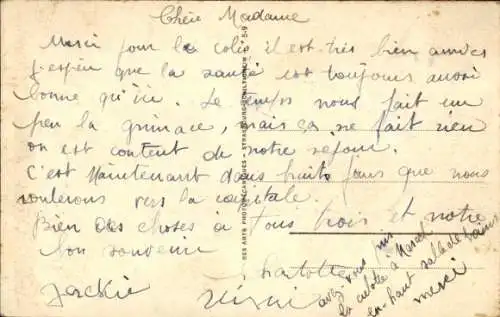 Chère Madame
Merci pour le colis il est très bien arrivés
J'espère que la santé est toujours aussi
bonne qu'ici. Le temps nous fait un
peu la grimace, mais ça ne fait rien
on est content de notre séjour.
C'est maintenant dans huit jours que nous
roulerons vers la capitale.
Bien des choses à tous trois et notre
bon souvenir
Charlotte
Jackie
avez-vous pris
la culotte à Marcel
en haut salle de bains
merci
DES ARTS PHOTOMÉCANIQUES - STRASBOURG-SCHILTIGHEIM 5-9